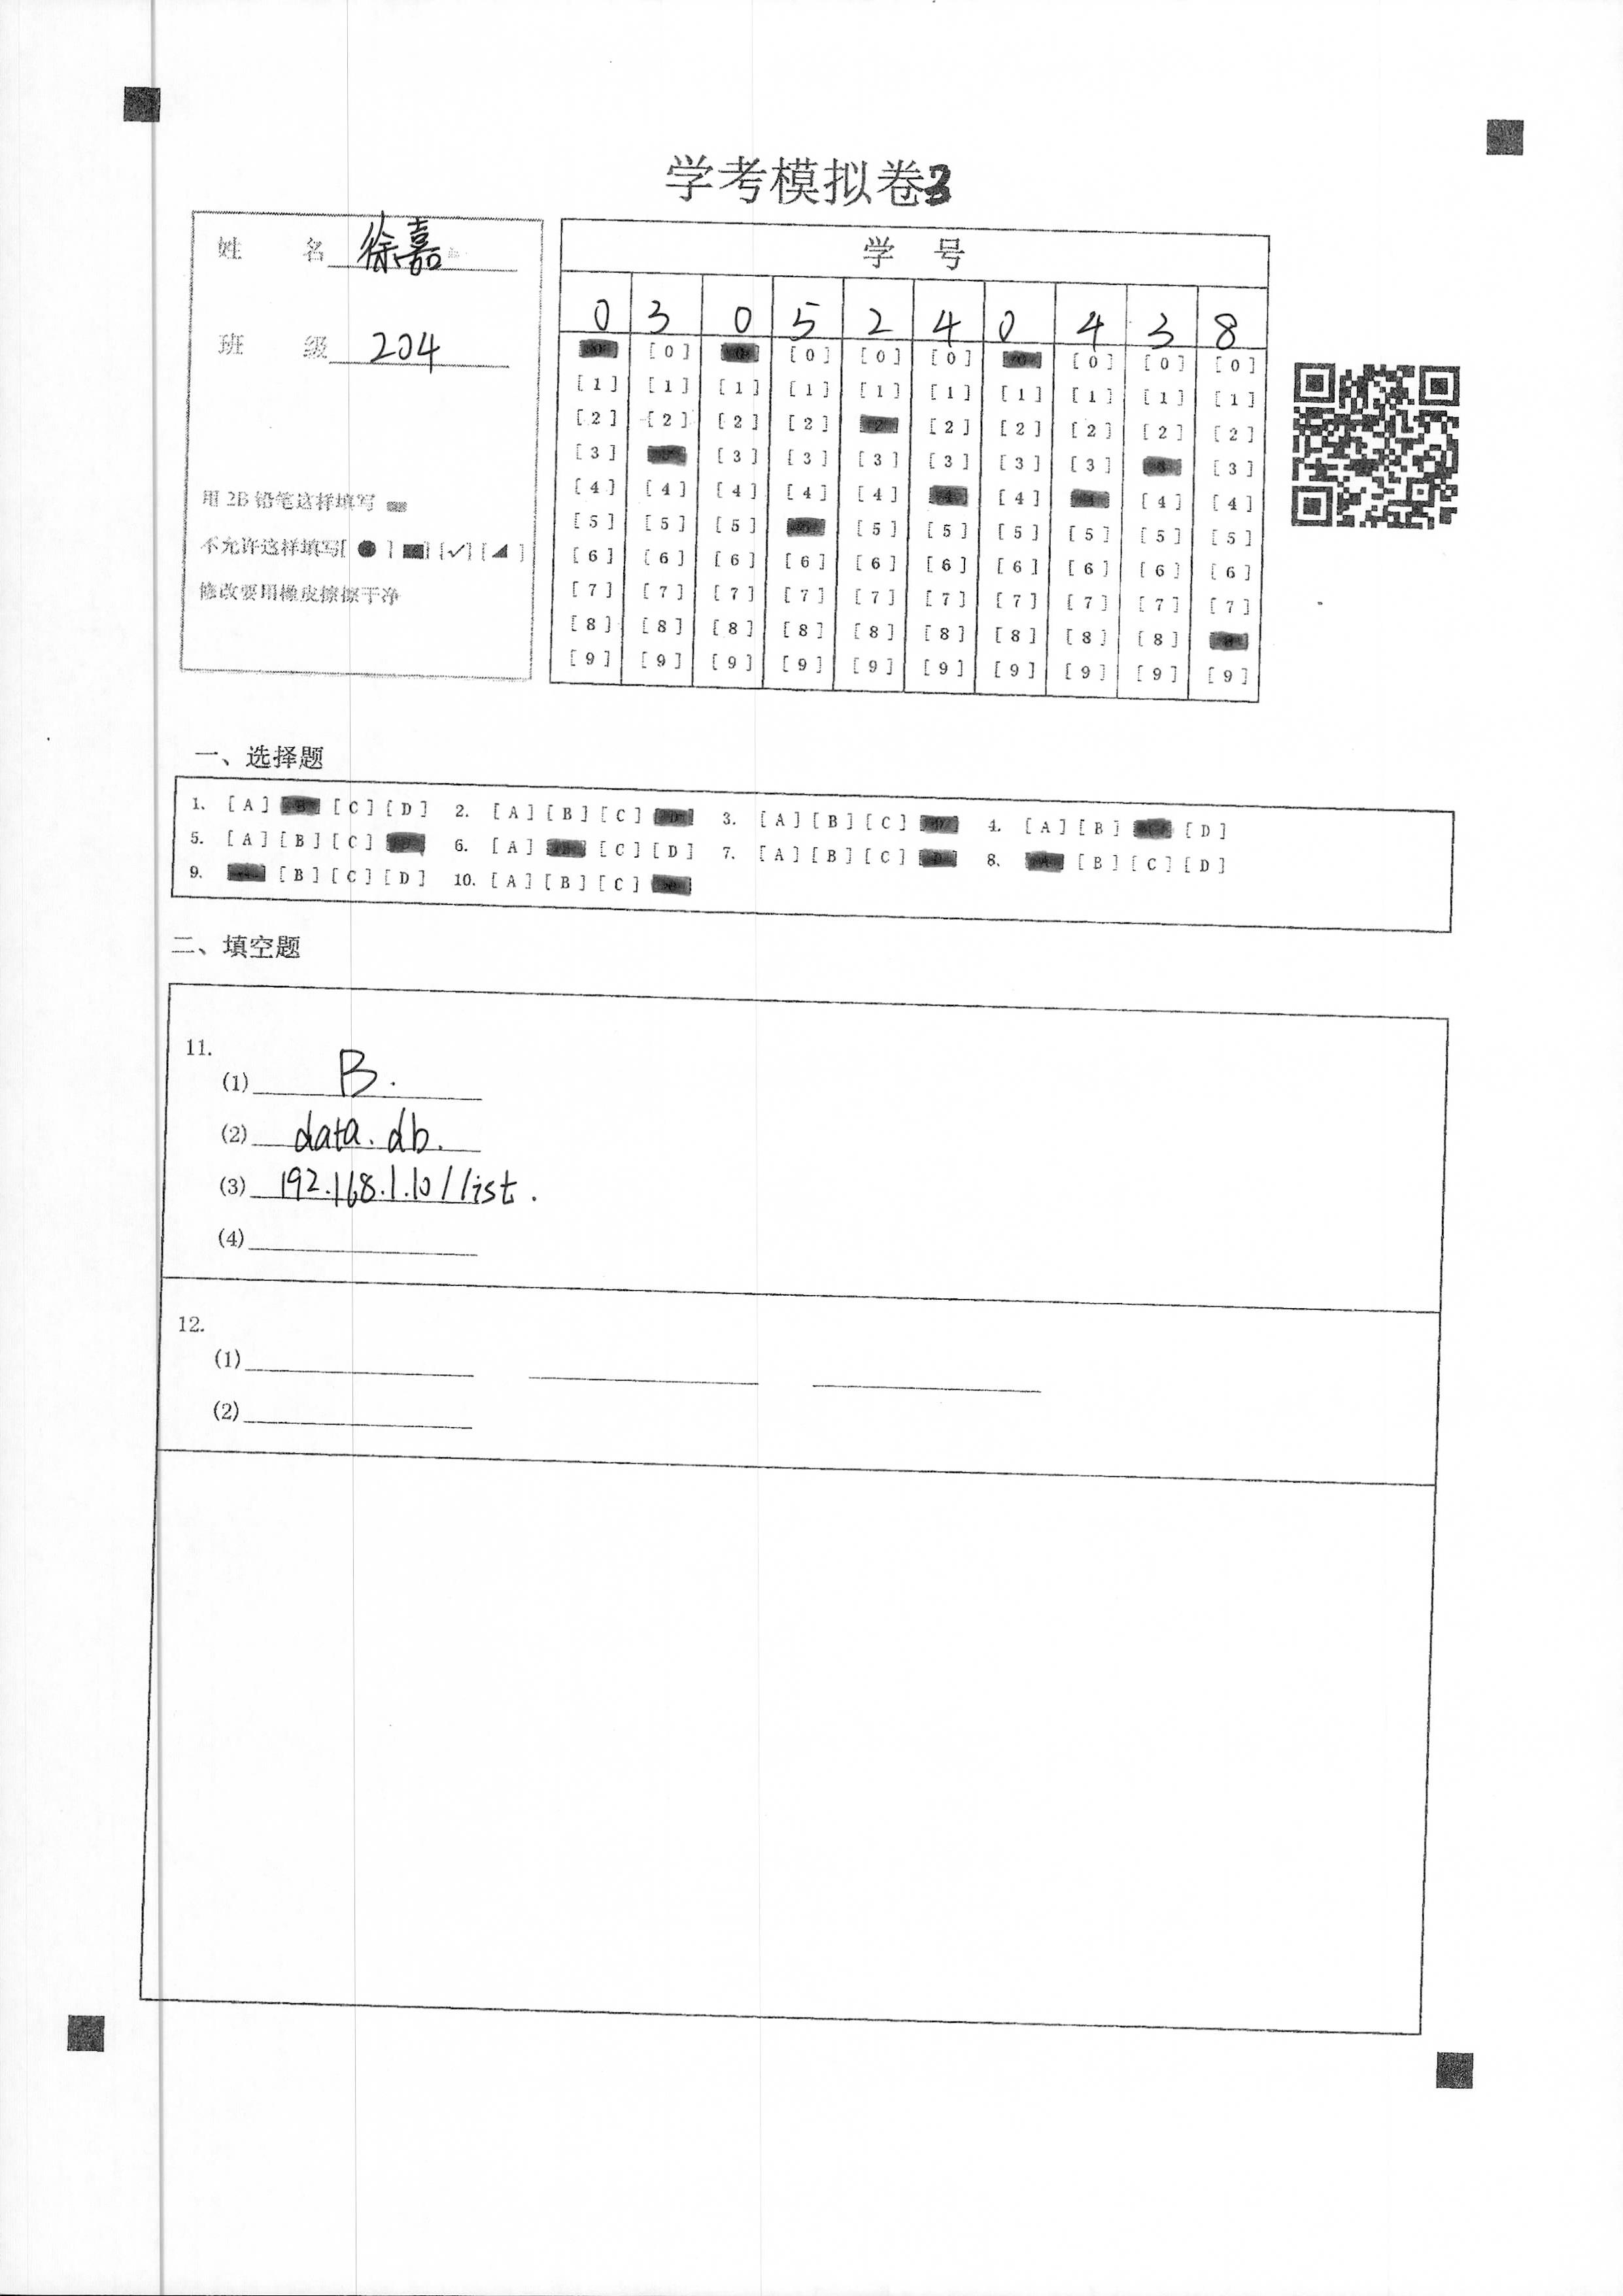 学考模拟卷3
姓 名 徐嘉
班 级 204
用 2B 铅笔这样填写
不允许这样填写[ ● ] [■] [✓] [◢ ]
修改要用橡皮擦擦干净
学 号
0 3 0 5 2 4 0 4 3 8
[0] [0] [0] [0] [0] [0] [0] [0] [0] [0]
[1] [1] [1] [1] [1] [1] [1] [1] [1] [1]
[2] [2] [2] [2] [2] [2] [2] [2] [2] [2]
[3] [3] [3] [3] [3] [3] [3] [3] [3] [3]
[4] [4] [4] [4] [4] [4] [4] [4] [4] [4]
[5] [5] [5] [5] [5] [5] [5] [5] [5] [5]
[6] [6] [6] [6] [6] [6] [6] [6] [6] [6]
[7] [7] [7] [7] [7] [7] [7] [7] [7] [7]
[8] [8] [8] [8] [8] [8] [8] [8] [8] [8]
[9] [9] [9] [9] [9] [9] [9] [9] [9] [9]
一、选择题
1. [A] [B] [C] [D] 2. [A] [B] [C] [D] 3. [A] [B] [C] [D] 4. [A] [B] [C] [D]
5. [A] [B] [C] [D] 6. [A] [B] [C] [D] 7. [A] [B] [C] [D] 8. [A] [B] [C] [D]
9. [A] [B] [C] [D] 10. [A] [B] [C] [D]
二、填空题
11.
(1) B.
(2) data.db.
(3) 192.168.1.10/list.
(4)
12.
(1)
(2)